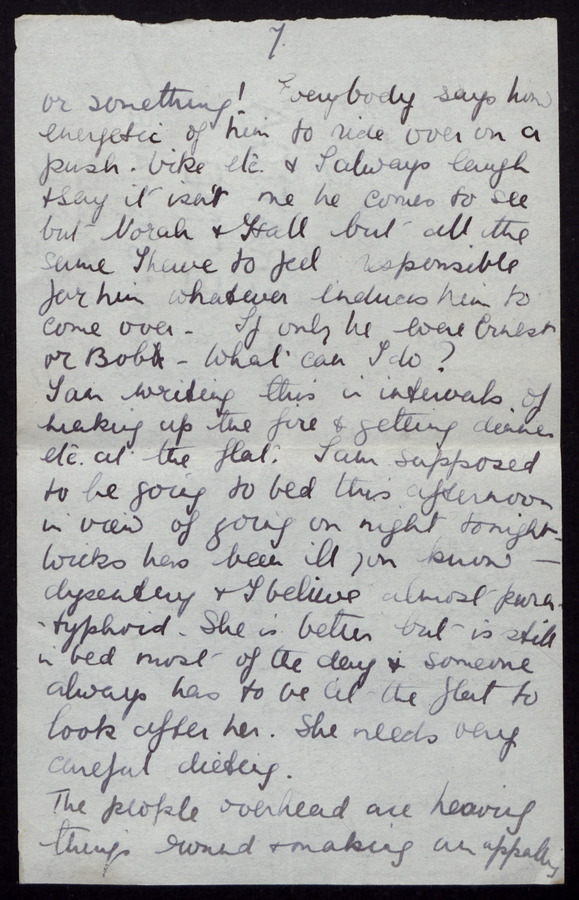 7.
or something! Everybody says how
energetic of him to ride over on a
push-bike etc. & I always laugh
& say it isn't me he comes to see
but Norah & all but all the
same I have to feel responsible
for him whatever induces him to
come over - If only he were Ernest
or Bob - What can I do?
I am writing this in intervals of
making up the fire & getting dinner
etc. at the flat. I am supposed
to be going to bed this afternoon
in view of going on night tonight -
Wicks has been ill you know -
dysentery & I believe almost para-
-typhoid. She is better but is still
in bed most of the day & someone
always has to be at the flat to
look after her. She needs very
careful dieting.
The people overhead are heaving
things round & making an appalling